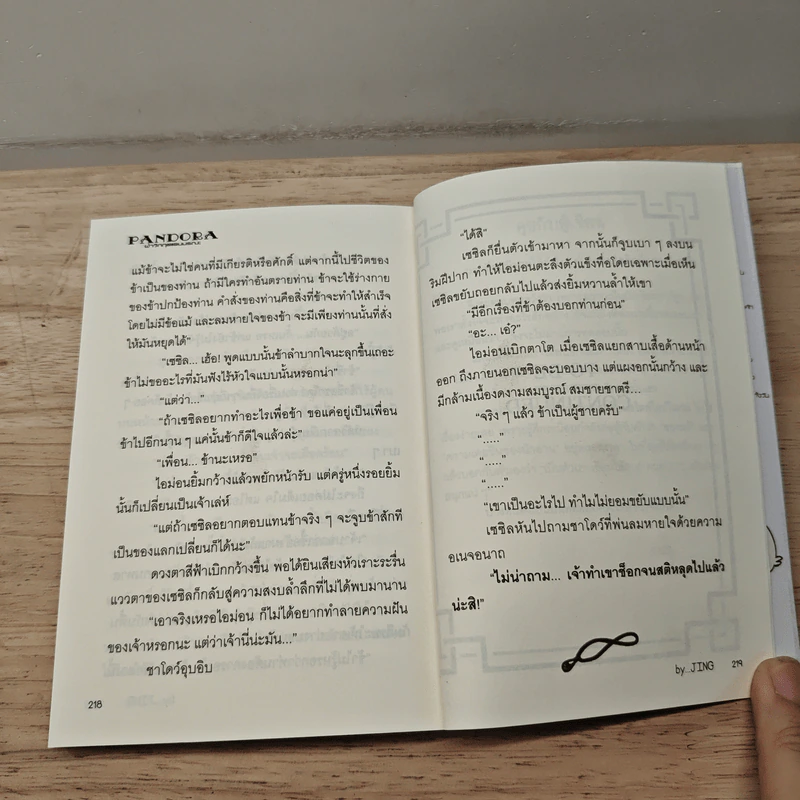 PANDORA
แม้ข้าจะไม่ใช่คนที่มีเกียรติหรือศักดิ์ แต่จากนี้ไปชีวิตของ
ข้าเป็นของท่าน ถ้ามีใครทำอันตรายท่าน ข้าจะใช้ร่างกาย
ของข้าปกป้องท่าน คำสั่งของท่านคือสิ่งที่ข้าจะทำให้สำเร็จ
โดยไม่มีข้อแม้ และลมหายใจของข้า จะมีเพียงท่านนั้นที่สั่ง
ให้มันหยุดได้”
“เซซิล... เฮ้อ! พูดแบบนั้นข้าลำบากใจนะลุกขึ้นเถอะ
ข้าไม่ขออะไรที่มันฟังไร้หัวใจแบบนั้นหรอกน่า”
“แต่ว่า...”
“ถ้าเซซิลอยากทำอะไรเพื่อข้า ขอแค่อยู่เป็นเพื่อน
ข้าไปอีกนาน ๆ แค่นั้นข้าก็ดีใจแล้วล่ะ”
“เพื่อน... ข้านะเหรอ”
ไอม่อนยิ้มกว้างแล้วพยักหน้ารับ แต่ครู่หนึ่งรอยยิ้ม
นั้นก็เปลี่ยนเป็นเจ้าเล่ห์
“แต่ถ้าเซซิลอยากตอบแทนข้าจริง ๆ จะจูบข้าสักที
เป็นของแลกเปลี่ยนก็ได้นะ”
ดวงตาสีฟ้าเบิกกว้างขึ้น พอได้ยินเสียงหัวเราะระรื่น
แววตาของเซซิลก็กลับสู่ความสงบล้ำลึกที่ไม่ได้พบมานาน
“เอาจริงเหรอไอม่อน ก็ไม่ได้อยากทำลายความฝัน
ของเจ้าหรอกนะ แต่ว่าเจ้านี่น่ะมัน...”
ชาโดว์อุบอิบ
218
“ได้สิ”
เซซิลก็ยื่นตัวเข้ามาหา จากนั้นก็จูบเบา ๆ ลงบน
ริมฝีปาก ทำให้ไอม่อนตะลึงตัวแข็งทื่อโดยเฉพาะเมื่อเห็น
เซซิลขยับถอยกลับไปแล้วส่งยิ้มหวานล้ำให้เขา
“มีอีกเรื่องที่ข้าต้องบอกท่านก่อน”
“อะ... เอ๋?”
ไอม่อนเบิกตาโต เมื่อเซซิลแยกสาบเสื้อด้านหน้า
ออก ถึงภายนอกเซซิลจะบอบบาง แต่แผงอกนั้นกว้าง และ
มีกล้ามเนื้องดงามสมบูรณ์ สมชายชาตรี...
“จริง ๆ แล้ว ข้าเป็นผู้ชายครับ”
“.....”
“.....”
“.....”
“เขาเป็นอะไรไป ทำไมไม่ยอมขยับแบบนั้น”
เซซิลหันไปถามชาโดว์ที่พ่นลมหายใจด้วยความ
อเนจอนาถ
“ไม่น่าถาม... เจ้าทำเขาช็อกจนสติหลุดไปแล้ว
น่ะสิ!”
by...JING 219